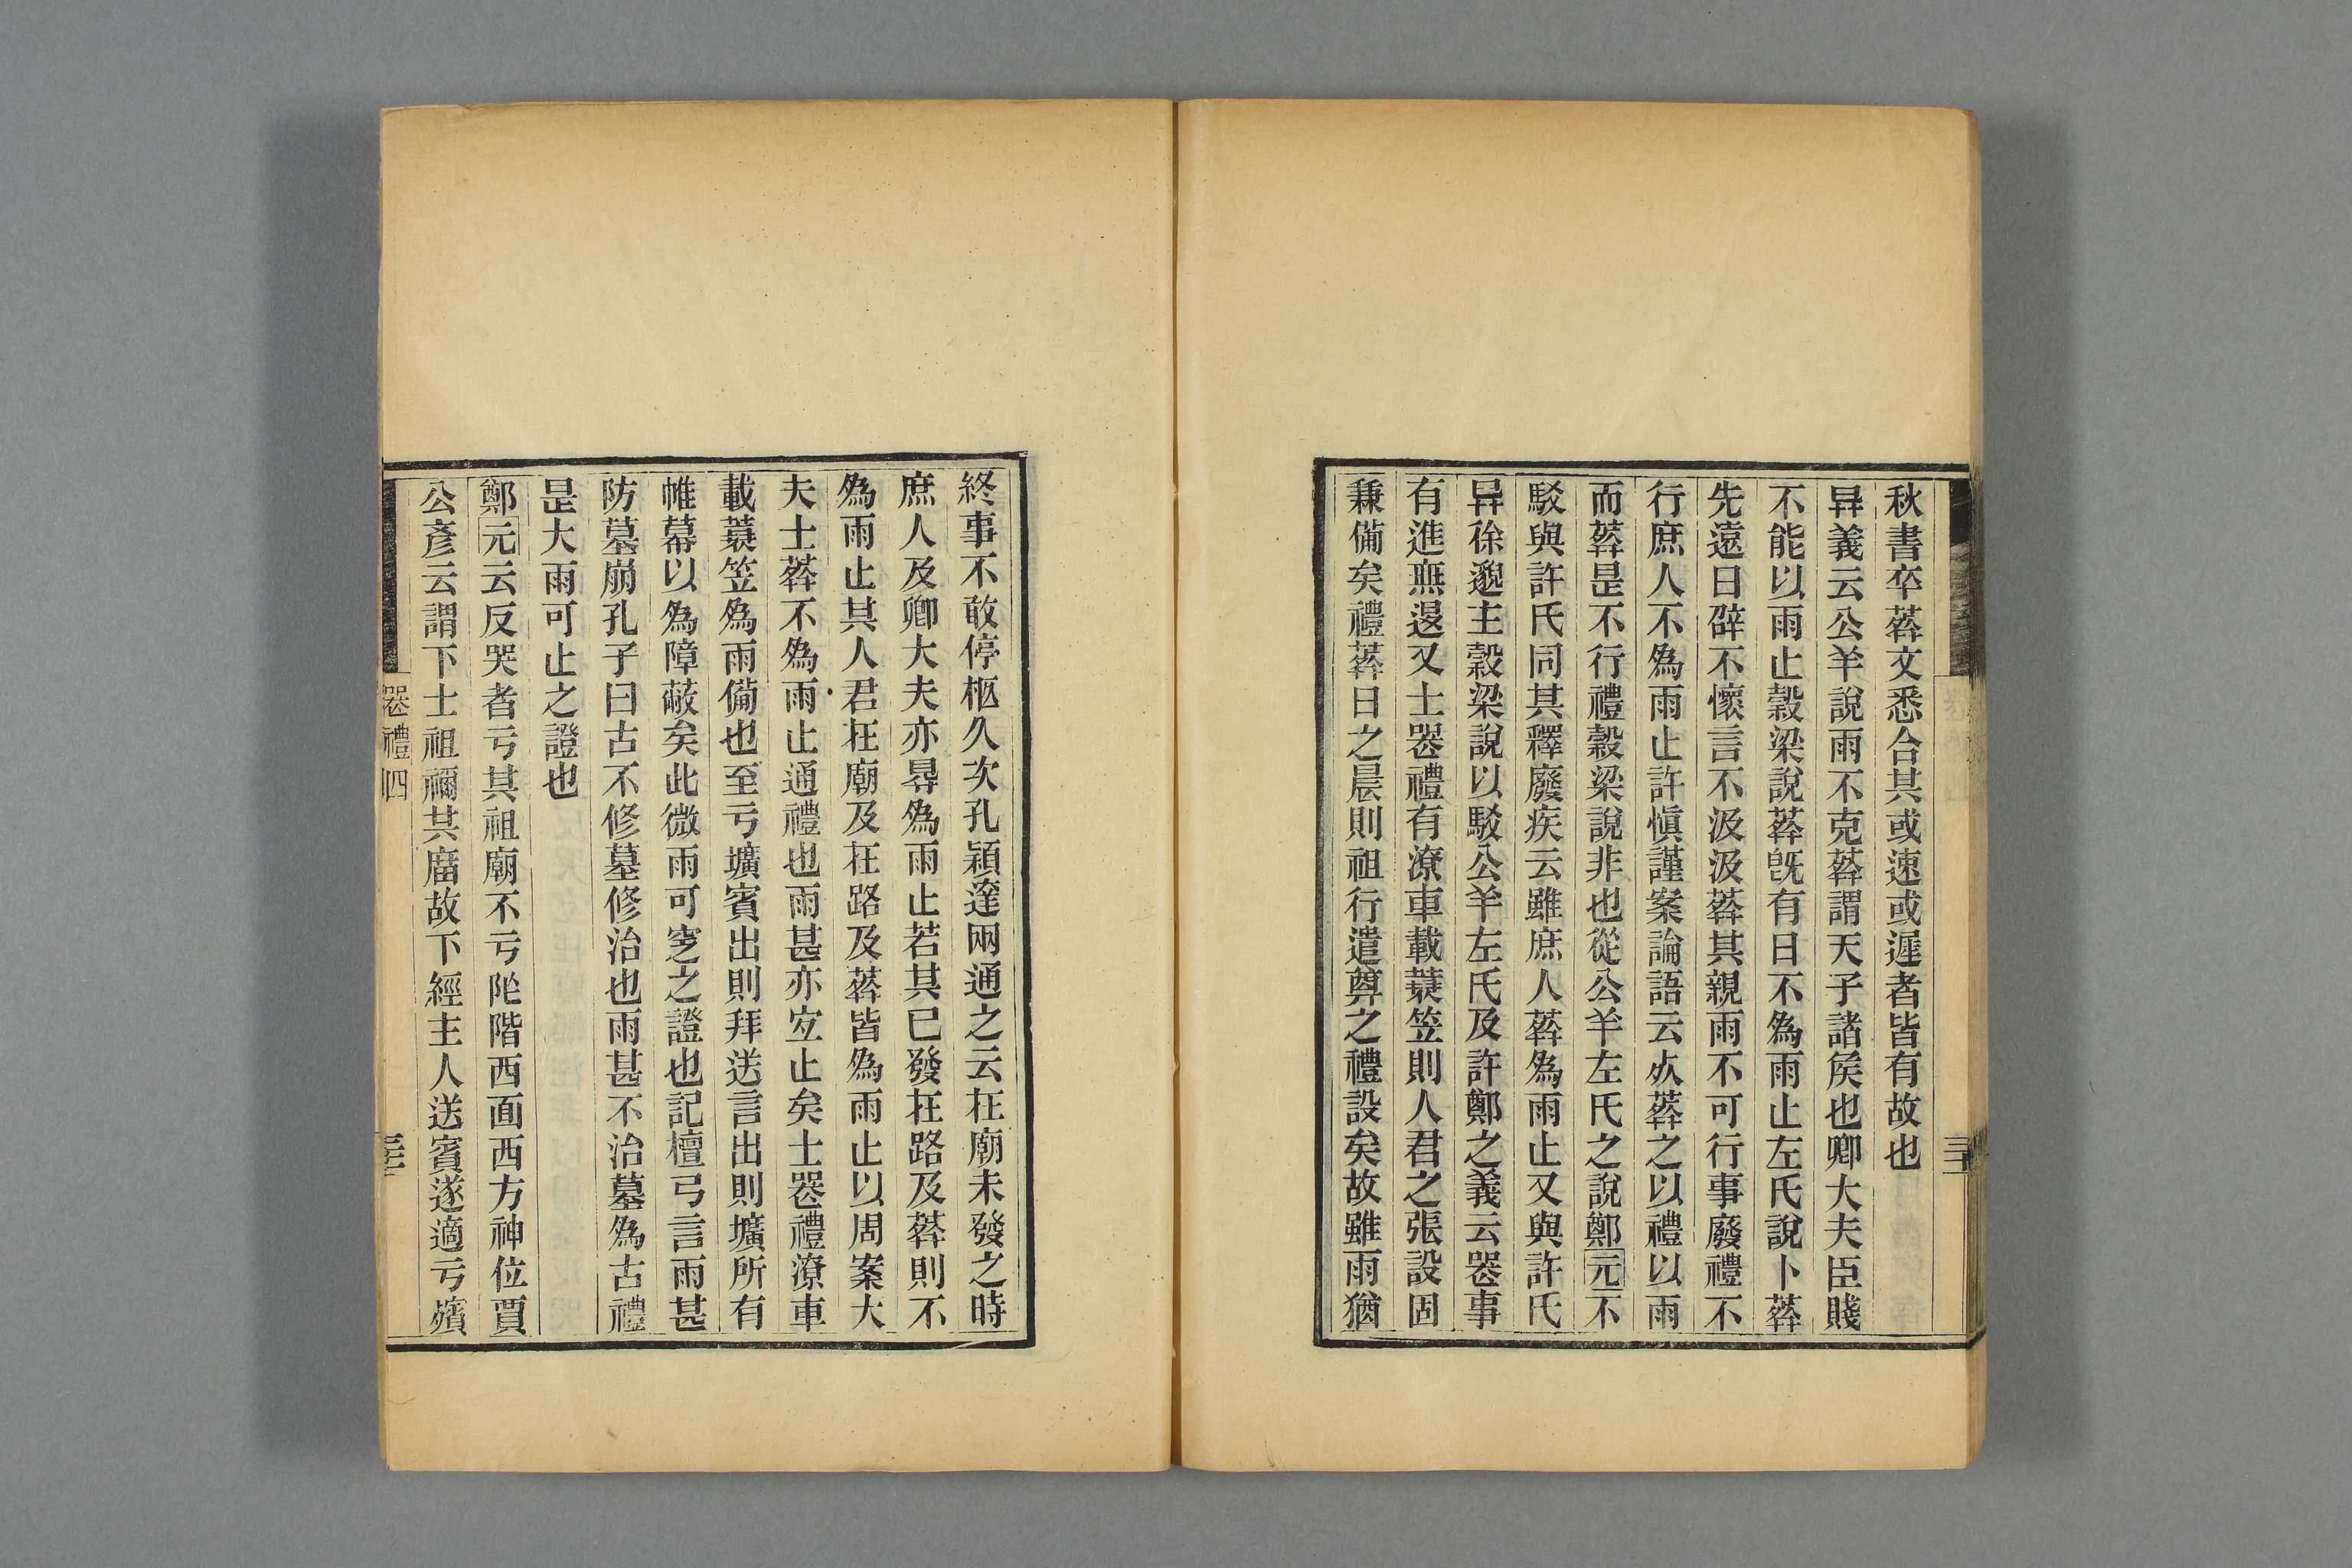 秋書卒葬文悉合其或速或遲者皆有故也
异義云公羊說雨不克葬謂天子諸矦也卿大夫臣賤
不能以雨止穀梁說葬旣有日不為雨止左氏說卜葬
先遠日辟不懷言不汲汲葬其親雨不可行事廢禮不
行庶人不為雨止許愼謹案論語云𣦸葬之以禮以雨
而葬是不行禮穀梁說非也從公羊左氏之說鄭元不
駮與許氏同其釋廢疾云雖庶人葬為雨止又與許氏
异徐邈主穀梁說以駮公羊左氏及許鄭之義云喪事
有進無𨓤又士喪禮有潦車載蓑笠則人君之張設固
兼備矣禮葬日之晨則祖行遣尊之禮設矣故雖雨猶
終事不敢停柩久次孔穎達兩通之云在廟未發之時
庶人及卿大夫亦得為雨止若其已發在路及葬則不
為雨止其人君在廟及在路及葬皆為雨止以周案大
夫士葬不為雨止通禮也雨甚亦宜止矣士喪禮潦車
載蓑笠為雨備也至亏壙賓出則拜送言出則壙所有
帷幕以為障蔽矣此微雨可窆之證也記檀弓言雨甚
防墓崩孔子曰古不修墓修治也雨甚不治墓為古禮
是大雨可止之證也
鄭元云反哭者亏其祖廟不亏阼階西面西方神位賈
公彥云謂下士祖禰共庿故下經主人送賓遂適亏殯
喪禮四